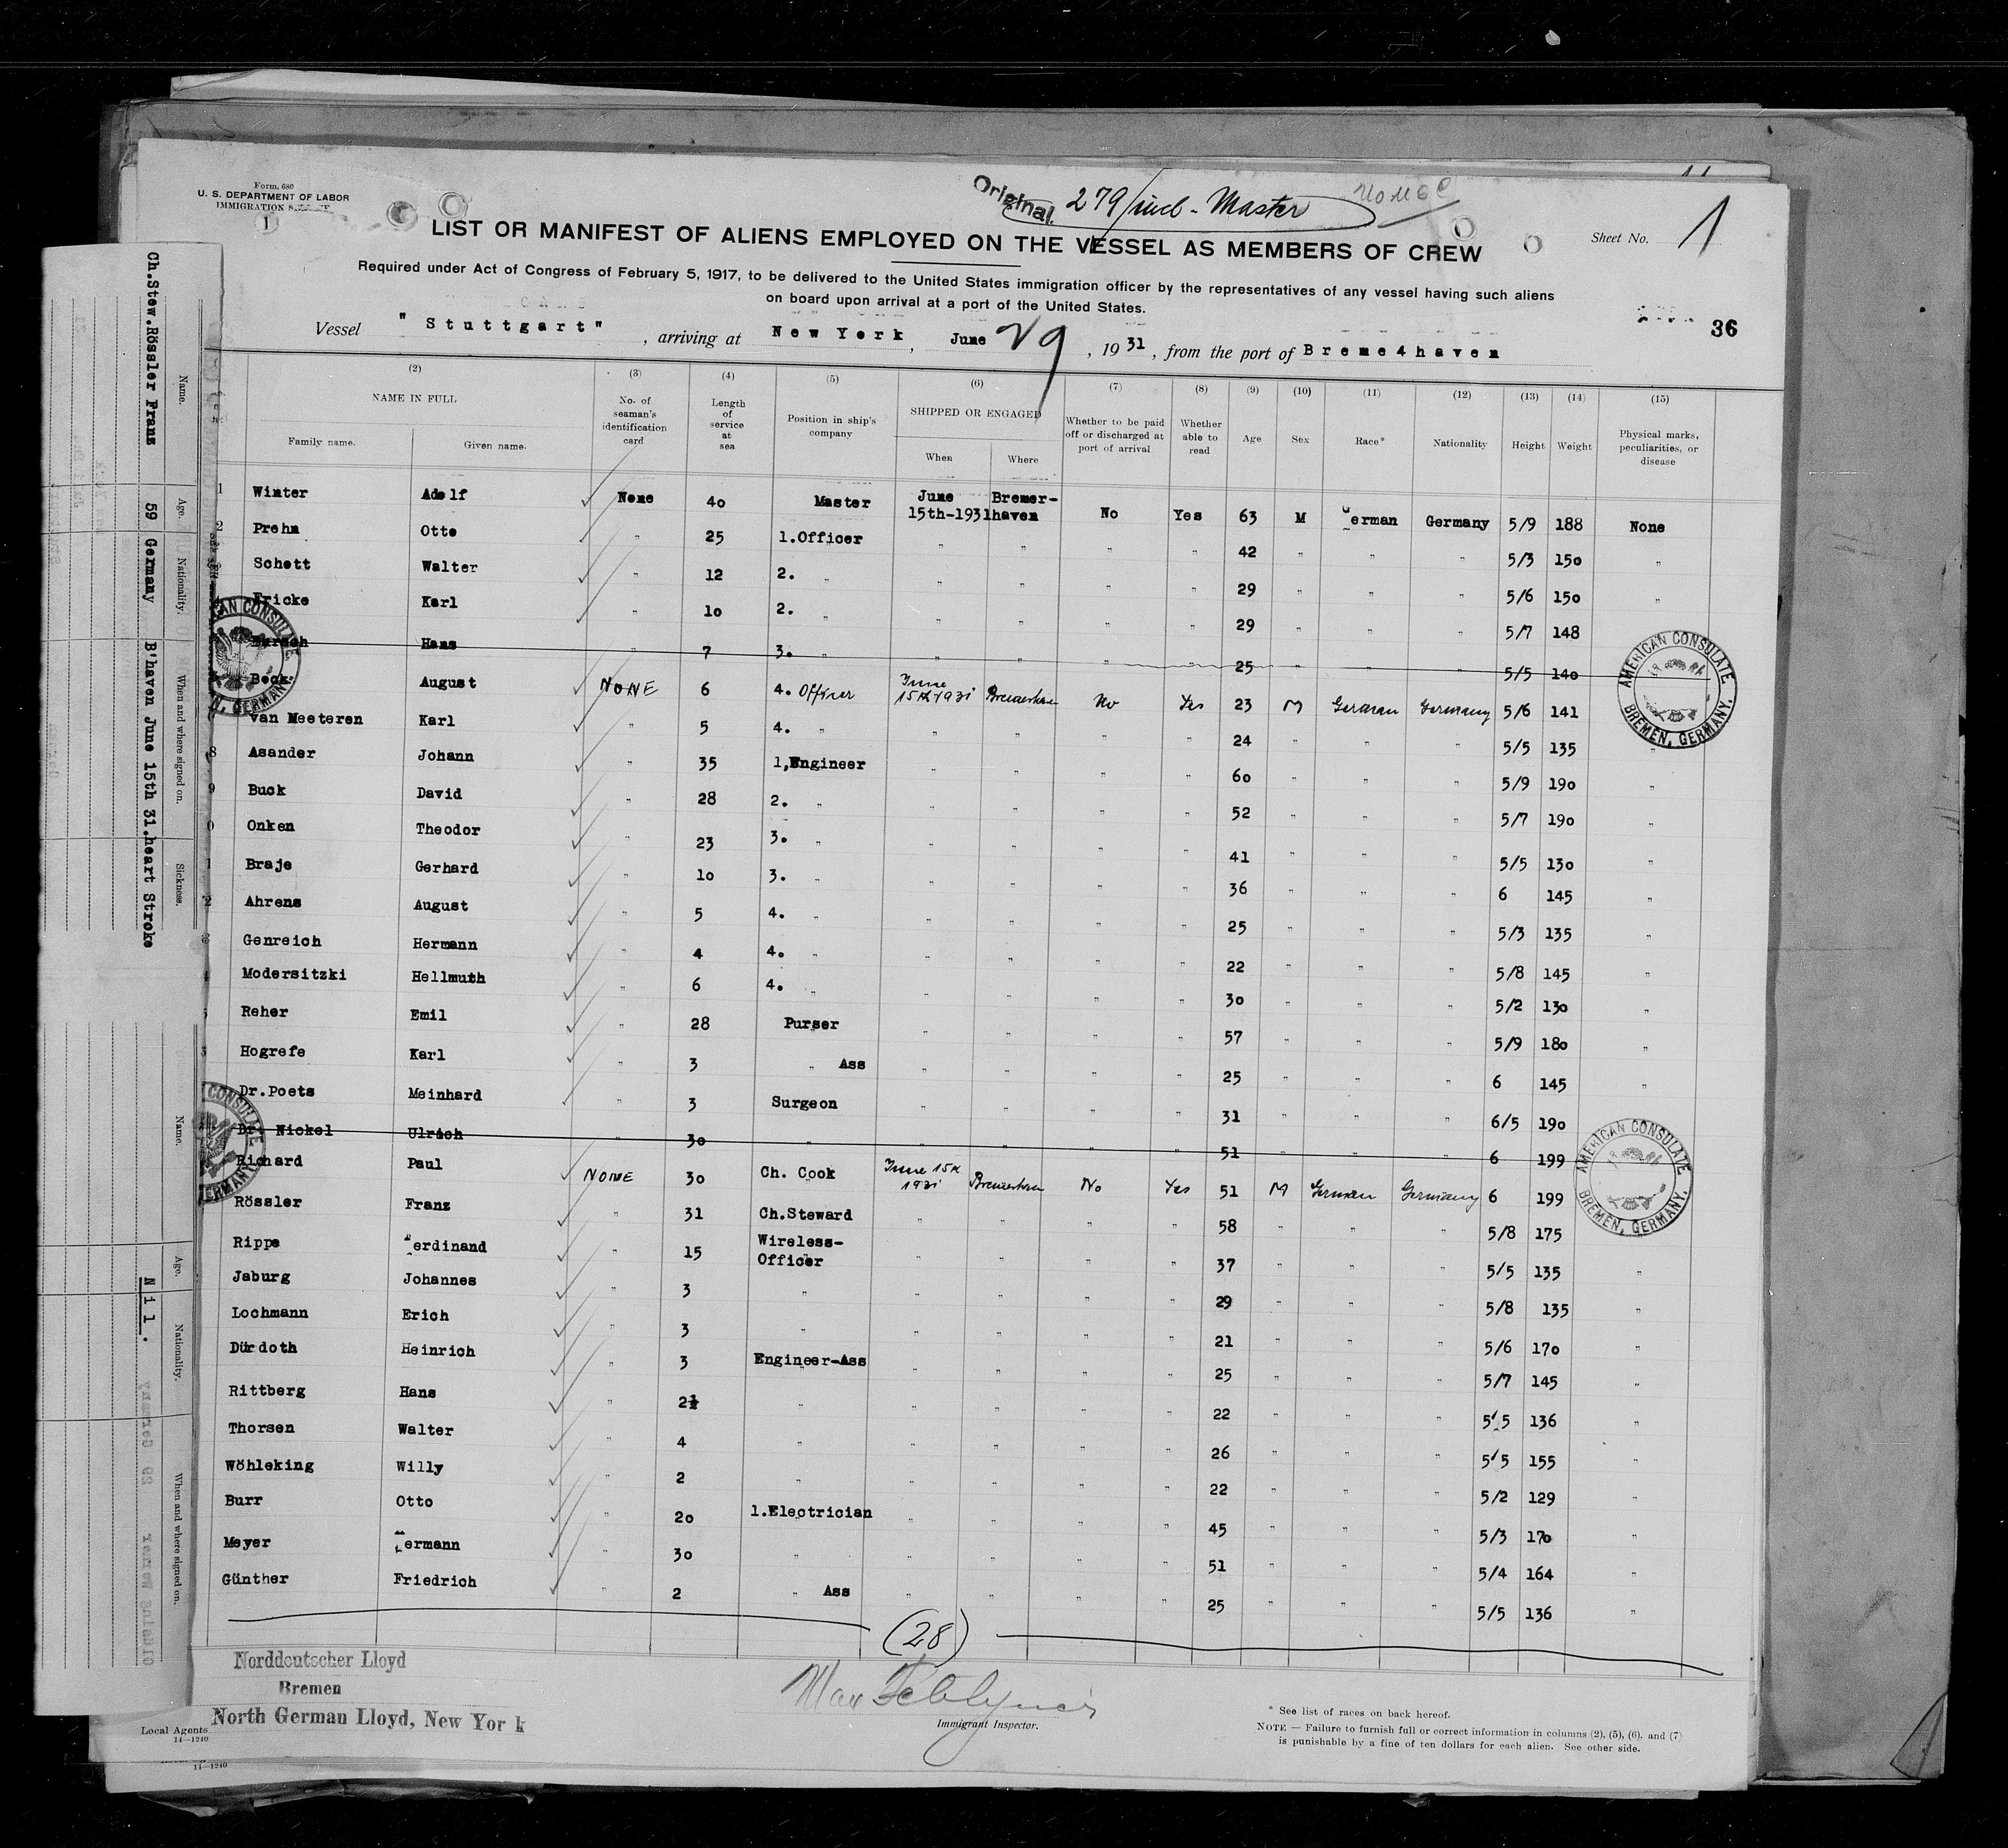 Form. 680
U. S. DEPARTMENT OF LABOR
IMMIGRATION
1
Original. 279/incl. Master
LIST OR MANIFEST OF ALIENS EMPLOYED ON THE VESSEL AS MEMBERS OF CREW
Sheet No. 1
Required under Act of Congress of February 5, 1917, to be delivered to the United States immigration officer by the representatives of any vessel having such aliens
on board upon arrival at a port of the United States.
36
Vessel "Stuttgart", arriving at New York, June 29, 1931, from the port of Breme4haven
(2) (3) (4) (5) (6) (7) (8) (9) (10) (11) (12) (13) (14) (15)
NAME IN FULL
Family name. Given name.
No. of seaman's identification card
Length of service at sea
Position in ship's company
SHIPPED OR ENGAGED
When Where
Whether to be paid off or discharged at port of arrival
Whether able to read
Age Sex Race* Nationality Height Weight
Physical marks, peculiarities, or disease
1 Winter Adolf None 40 Master June 15th-1931 Bremer-haven No Yes 63 M German Germany 5/9 188 None
2 Prehn Otto " 25 1.Officer " " " " 42 " " " 5/3 150 "
Schott Walter " 12 2. " " " " " 29 " " " 5/6 150 "
Fricke Karl " 10 2. " " " " " 29 " " " 5/7 148
Hans " 7 3. " " " " " 25 " " " 5/5 140
Beck August NONE 6 4. Officer June 15th 1931 Bremerhaven No Yes 23 M German Germany 5/6 141
van Meeteren Karl " 5 4. " " " " " 24 " " " 5/5 135 "
8 Asander Johann " 35 1,Engineer " " " " 60 " " " 5/9 190 "
9 Buck David " 28 2. " " " " " 52 " " " 5/7 190 "
0 Onken Theodor " 23 3. " " " " " 41 " " " 5/5 130 "
1 Braje Gerhard " 10 3. " " " " " 36 " " " 6 145 "
2 Ahrens August " 5 4. " " " " " 25 " " " 5/3 135 "
Genreich Hermann " 4 4. " " " " " 22 " " " 5/8 145 "
Modersitzki Hellmuth " 6 4. " " " " " 30 " " " 5/2 130 "
Reher Emil " 28 Purser " " " " 57 " " " 5/9 180 "
Hogrefe Karl " 3 " Ass " " " " 25 " " " 6 145 "
Dr.Poets Meinhard " 3 Surgeon " " " " 31 " " " 6/5 190
Dr. Nickel Ulrich " 30 " " " " " 51 " " " 6 199
Richard Paul NONE 30 Ch. Cook June 15th 1931 Bremerhaven No Yes 51 M German Germany 6 199
Rössler Franz " 31 Ch.Steward " " " " 58 " " " 5/8 175
Rippe Ferdinand " 15 Wireless-Officer " " " " 37 " " " 5/5 135 "
Jaburg Johannes " 3 " " " " " 29 " " " 5/8 135 "
Lochmann Erich " 3 " " " " " 21 " " " 5/6 170 "
Dürdoth Heinrich " 3 Engineer-Ass " " " " 25 " " " 5/7 145 "
Rittberg Hans " 2½ " " " " " 22 " " " 5/5 136 "
Thorsen Walter " 4 " " " " " 26 " " " 5/5 155 "
Wöhleking Willy " 2 " " " " " 22 " " " 5/2 129 "
Burr Otto " 20 1.Electrician " " " " 45 " " " 5/3 170 "
Meyer Hermann " 30 " " " " " 51 " " " 5/4 164 "
Günther Friedrich " 2 " Ass " " " " 25 " " " 5/5 136 "
(28)
Norddeutscher Lloyd
Bremen
North German Lloyd, New York
Local Agents
14—1240
14—1240
Immigrant Inspector.
* See list of races on back hereof.
NOTE — Failure to furnish full or correct information in columns (2), (5), (6), and (7)
is punishable by a fine of ten dollars for each alien. See other side.
AMERICAN CONSULATE
BREMEN, GERMANY.
AMERICAN CONSULATE
BREMEN, GERMANY.
Name. Age. Nationality. When and where signed on. Sickness.
Ch.Stew.Rössler Franz 59 Germany B'haven June 15th 31.heart Stroke
Name. Age. Nationality. When and where signed on.
Nil.